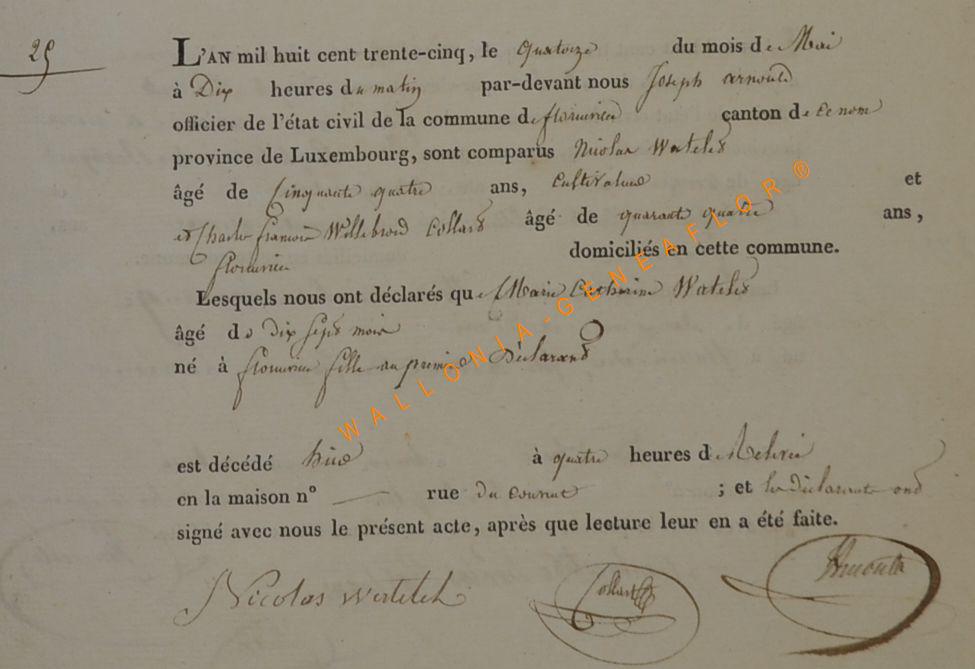 25
L'AN mil huit cent trente-cinq, le quatorze du mois de Mai
à Dix heures du matin par-devant nous Joseph Arnould
officier de l'état civil de la commune de florenville canton de ce nom
province de Luxembourg, sont comparus Nicolas Watelet
âgé de Cinquante quatre ans, Cultivateur et
et Charles françois Willebrord Collard âgé de quarante quatre ans,
florenville domiciliés en cette commune.
Lesquels nous ont déclarés que Marie Catherine Watelet
âgé de Dix sept mois
né à florenville fille au premier Déclarant
est décédé hier à quatre heures de
en la maison n° — rue du ; et les déclarants ont
signé avec nous le présent acte, après que lecture leur en a été faite.
Nicolas Collard Arnould
WALLONIA-GENEAFLOR ®